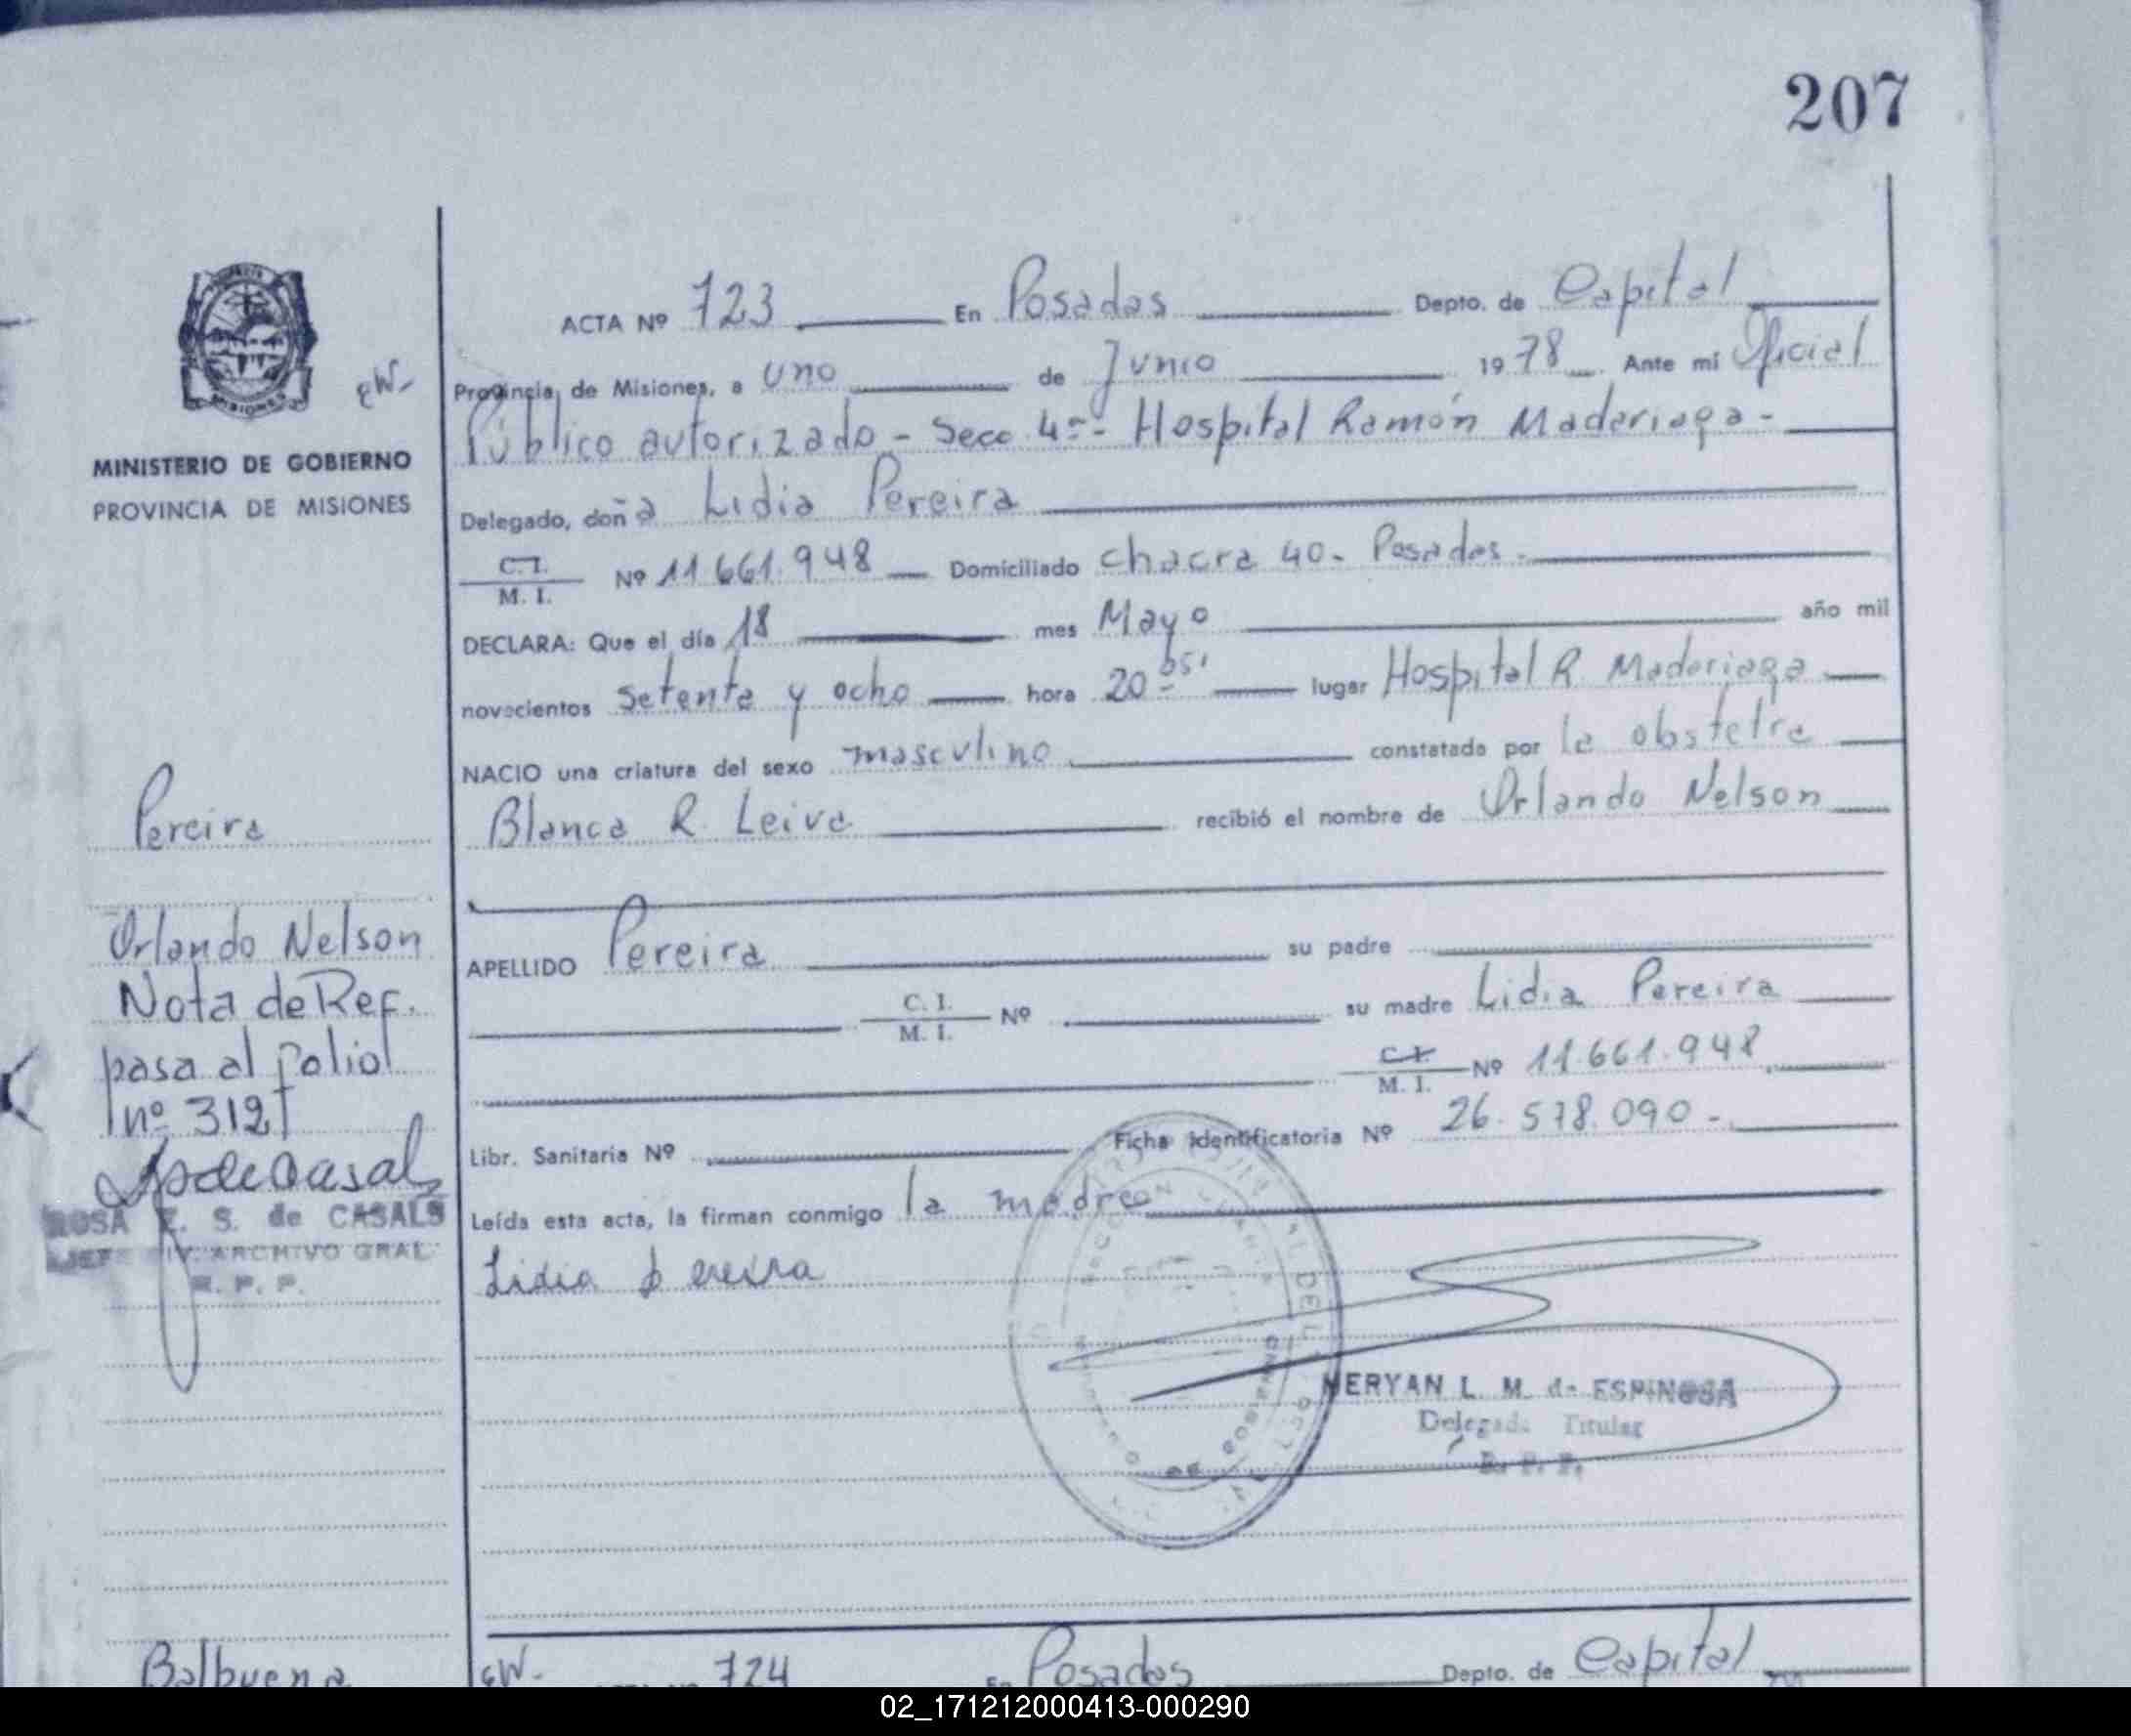 207
ACTA Nº 723 En Posadas Depto. de Capital
Provincia de Misiones, a uno de Junio 1978 Ante mí Oficial
Público autorizado - Secc. 4ª - Hospital Ramón Madariaga -
Delegado, doña Lidia Pereira
C.I. M. I. Nº 11.661.948 Domiciliado chacra 40 - Posadas -
DECLARA: Que el día 18 mes Mayo año mil
novecientos setenta y ocho hora 20 05' lugar Hospital R. Madariaga
NACIO una criatura del sexo masculino constatado por la obstetra
Blanca R. Leiva recibió el nombre de Orlando Nelson
APELLIDO Pereira su padre
C. I. M. I. Nº su madre Lidia Pereira
C.I. M. I. Nº 11.661.948
Libr. Sanitaria Nº Ficha identificatoria Nº 26.578.090 -
Leída esta acta, la firman conmigo la madre
Lidia Pereira
MERYAN L. M. de ESPINOSA
Delegada Titular
R. P. P.
MISIONES
MINISTERIO DE GOBIERNO
PROVINCIA DE MISIONES
Pereira
Orlando Nelson
Nota de Ref.
pasa al folio
nº 312
ROSA E. S. de CASALS
JEFE DIV. ARCHIVO GRAL
R. P. P.
Balbuena
724 En Posadas Depto. de Capital
02_171212000413-000290